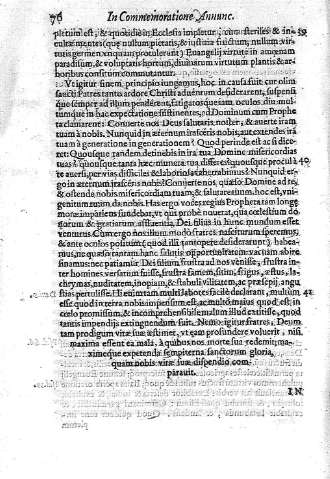 76 In Commemoratione Annunc.
pletum est, & quotidie in Ecclesia impletur, cum steriles & in- 39
cultæ mentes (quæ nullum pietatis, & iustitiæ fructum, nullum vir-
tutis germen unquam produxerant) Evangelij virtute in amœnum
paradisum, & voluptatis hortum, divinarum virtutum plantis & ar-
boribus consitum commutantur.
Ut igitur finem, principio iungemus, hoc in causa fuit cur olim
sancti Patres tanto ardore Christi adventum desiderarent, suspensi-
que semper ad illum penderent, fatigatosque iam oculos diu mul-
tumque in hac expectatione sustinentes, ad Dominum cum Prophe-
ta clamarent: Converte nos Deus salutaris noster, & averte iram
tuam à nobis. Nunquid in æternum irasceris nobis, aut extendes irã
tuam à generatione in generationem? Quod perinde est ac si dice-
ret: Quousque tandem detinebis in ira tua Domine misericordias
tuas? quousque tanta hæc munera tua differes? quousque procul à 40
te aversi, per vias difficiles & laboriosas aberrabimus? Nunquid er-
go in æternum irasceris nobis? Converte nos, quæso, Domine ad te,
& ostende nobis misericordiam tuam, & salutarem tuum, hoc est, vni-
genitum tuum da nobis. Has ergo voces regius Propheta tam longe
more impatiens fundebat, ut qui probe noverat, qua cœlestium do-
norum & gratiarum affluentia, Dei filius in hunc mundum esset
venturus. Cum ergo nos illum modo stratres nasciturum speremus,
& ante oculos positum (quod illi tantopere desiderarunt) habea-
mus, ne quæso tantam hanc salutis opportunitatem vacuam abire
sinamus: nec patiamur Dei filium frustra ad nos venisse, frustra in-
ter homines versatum fuisse, frustra famem, sitim, frigus, æstus, la-
chrymas, nuditatem, inopiam, & stabuli vilitatem, ac præsepij angu
stias pertulisse. Hi enim tam multi labores facile declarant, multum 41
esse quod in terra nobis impensum est, ac multo maius quod est in
cœlo promissum, & incomprehensibile malum illud extitisse, quod
tantis impendijs extinguendum fuit. Nemo igitur fratres, Deum
tam prodigum vitæ suæ æstimet, ut eam profundere voluerit, nisi
maxima essent ea mala, à quibus nos morte sua redemit; ma-
ximeque expetenda sempiterna sanctorum gloria,
quam nobis vitæ suæ dispendio com-
paravit.
IN